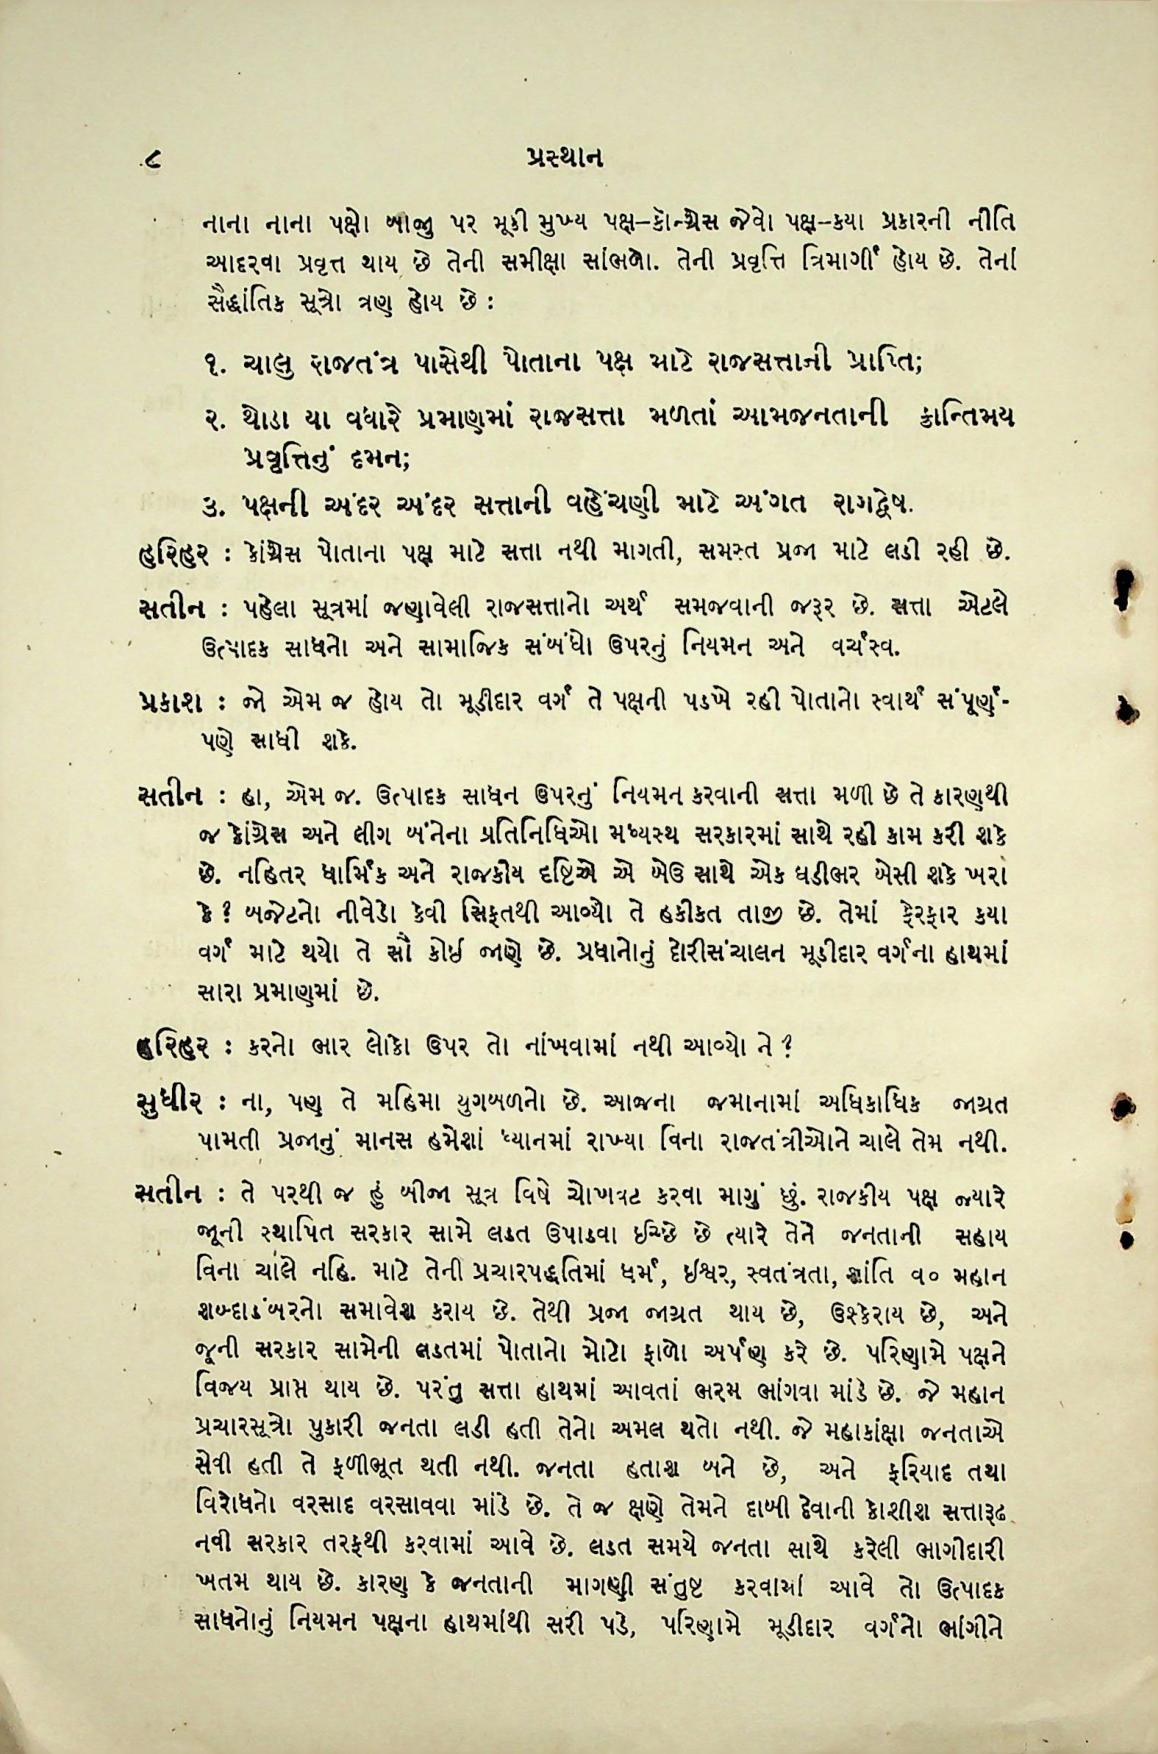 ૮
પ્રસ્થાન
નાના નાના પક્ષો બાજુ પર મૂકી મુખ્ય પક્ષ–કૉન્ગ્રેસ જેવો પક્ષ–કયા પ્રકારની નીતિ
આદરવા પ્રવૃત્ત થાય છે તેની સમીક્ષા સાંભળો. તેની પ્રવૃત્તિ ત્રિમાર્ગી હોય છે. તેનાં
સૈદ્ધાંતિક સૂત્રો ત્રણ હોય છે :
૧. ચાલુ રાજતંત્ર પાસેથી પોતાના પક્ષ માટે રાજસત્તાની પ્રાપ્તિ;
૨. થોડા યા વધારે પ્રમાણમાં રાજસત્તા મળતાં આમજનતાની ક્રાન્તિમય
પ્રવૃત્તિનું દમન;
૩. પક્ષની અંદર અંદર સત્તાની વહેંચણી માટે અંગત રાગદ્વેષ.
હરિહર : કોંગ્રેસ પોતાના પક્ષ માટે સત્તા નથી માગતી, સમસ્ત પ્રજા માટે લડી રહી છે.
સતીન : પહેલા સૂત્રમાં જણાવેલી રાજસત્તાનો અર્થ સમજવાની જરૂર છે. સત્તા એટલે
ઉત્પાદક સાધનો અને સામાજિક સંબંધો ઉપરનું નિયમન અને વર્ચસ્વ.
પ્રકાશ : જો એમ જ હોય તો મૂડીદાર વર્ગ તે પક્ષની પડખે રહી પોતાનો સ્વાર્થ સંપૂર્ણ-
પણે સાધી શકે.
સતીન : હા, એમ જ. ઉત્પાદક સાધન ઉપરનું નિયમન કરવાની સત્તા મળી છે તે કારણથી
જ કોંગ્રેસ અને લીગ બંનેના પ્રતિનિધિઓ મધ્યસ્થ સરકારમાં સાથે રહી કામ કરી શકે
છે. નહિતર ધાર્મિક અને રાજકીય દૃષ્ટિએ એ બેઉ સાથે એક ઘડીભર બેસી શકે ખરાં
કે? બજેટનો નીવેડો કેવી સિફતથી આવ્યો તે હકીકત તાજી છે. તેમાં ફેરફાર કયા
વર્ગ માટે થયો તે સૌ કોઈ જાણે છે. પ્રધાનોનું દોરીસંચાલન મૂડીદાર વર્ગના હાથમાં
સારા પ્રમાણમાં છે.
હરિહર : કરનો ભાર લોકો ઉપર તો નાંખવામાં નથી આવ્યો ને?
સુધીર : ના, પણ તે મહિમા યુગબળનો છે. આજના જમાનામાં અધિકાધિક જાગ્રત
પામતી પ્રજાનું માનસ હમેશાં ધ્યાનમાં રાખ્યા વિના રાજતંત્રીઓને ચાલે તેમ નથી.
સતીન : તે પરથી જ હું બીજા સૂત્ર વિષે ચોખવટ કરવા માગું છું. રાજકીય પક્ષ જ્યારે
જૂની સ્થાપિત સરકાર સામે લડત ઉપાડવા ઈચ્છે છે ત્યારે તેને જનતાની સહાય
વિના ચાલે નહિ. માટે તેની પ્રચારપદ્ધતિમાં ધર્મ, ઈશ્વર, સ્વતંત્રતા, શાંતિ વ૦ મહાન
શબ્દાડંબરનો સમાવેશ કરાય છે. તેથી પ્રજા જાગ્રત થાય છે, ઉશ્કેરાય છે, અને
જૂની સરકાર સામેની લડતમાં પોતાનો મોટો ફાળો અર્પણ કરે છે. પરિણામે પક્ષને
વિજય પ્રાપ્ત થાય છે. પરંતુ સત્તા હાથમાં આવતાં ભરમ ભાંગવા માંડે છે. જે મહાન
પ્રચારસૂત્રો પુકારી જનતા લડી હતી તેનો અમલ થતો નથી. જે મહાકાંક્ષા જનતાએ
સેવી હતી તે ફળીભૂત થતી નથી. જનતા હતાશ બને છે, અને ફરિયાદ તથા
વિરોધનો વરસાદ વરસાવવા માંડે છે. તે જ ક્ષણે તેમને દાબી દેવાની કોશીશ સત્તારૂઢ
નવી સરકાર તરફથી કરવામાં આવે છે. લડત સમયે જનતા સાથે કરેલી ભાગીદારી
ખતમ થાય છે. કારણ કે જનતાની માગણી સંતુષ્ટ કરવામાં આવે તો ઉત્પાદક
સાધનોનું નિયમન પક્ષના હાથમાંથી સરી પડે, પરિણામે મૂડીદાર વર્ગનો ભાંગીને